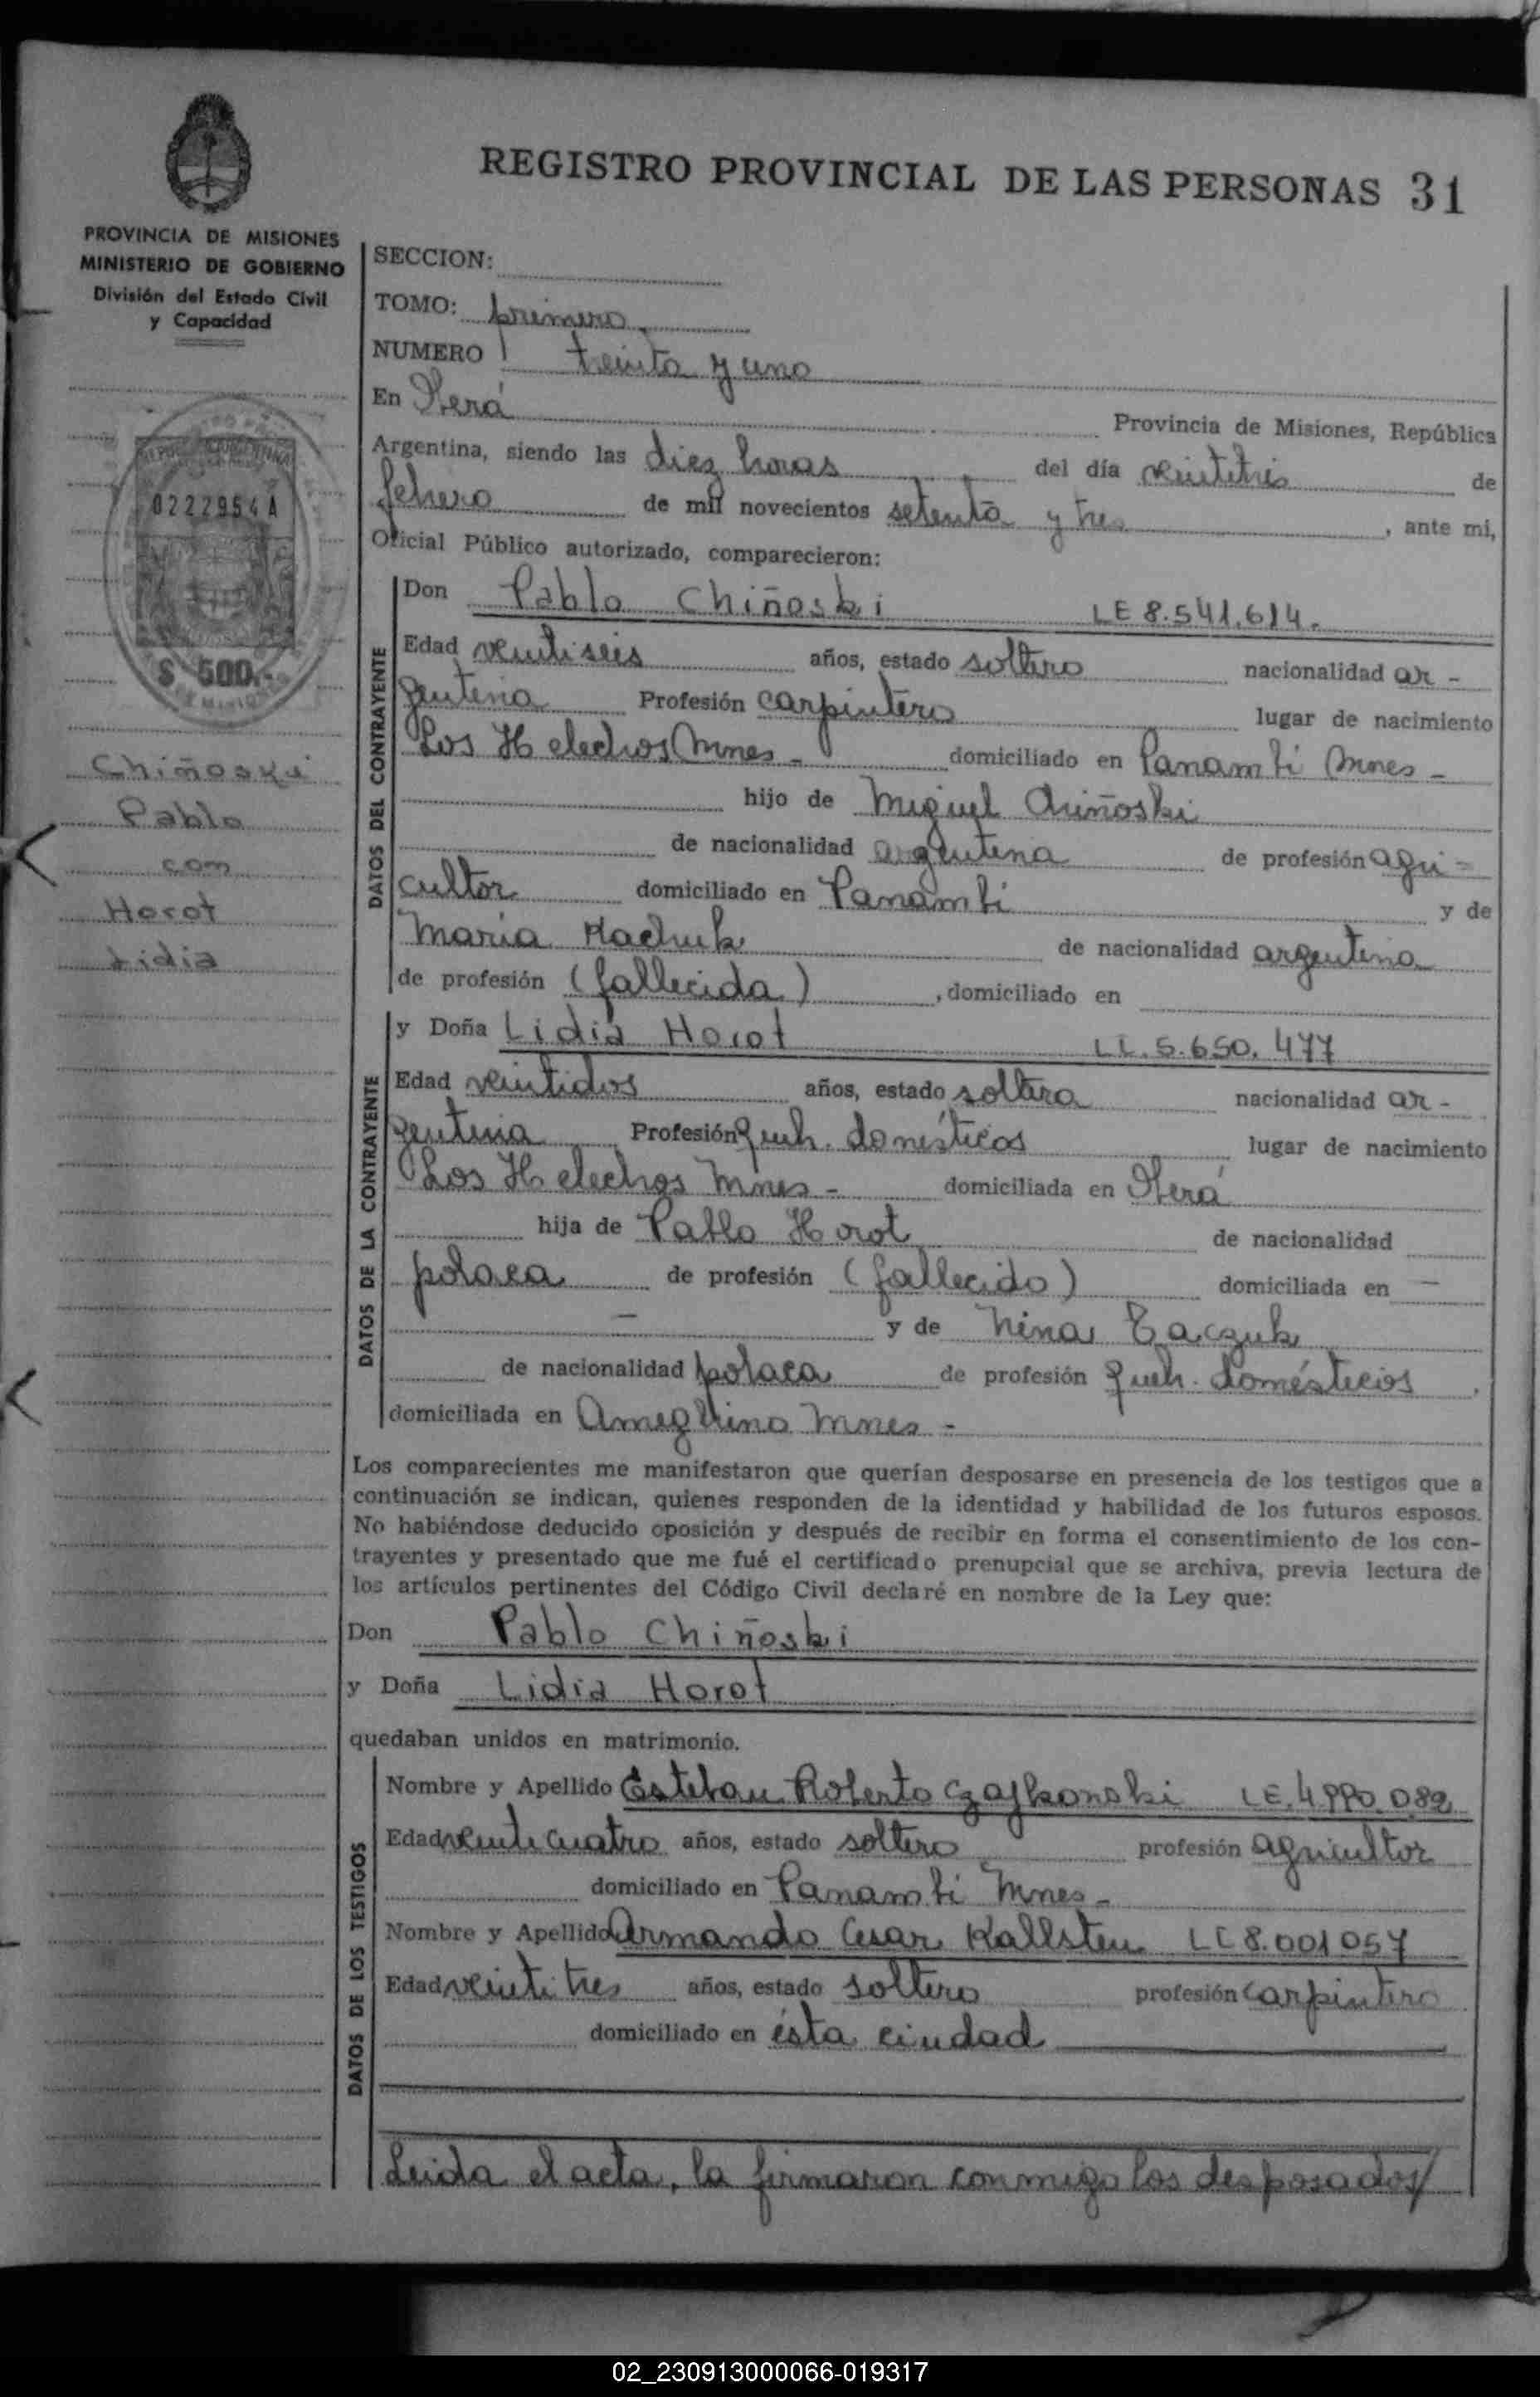 REGISTRO PROVINCIAL DE LAS PERSONAS 31
PROVINCIA DE MISIONES
MINISTERIO DE GOBIERNO
División del Estado Civil
y Capacidad
0222954 A
$ 500.-
Chiñoski
Pablo
con
Horot
Lidia
SECCION:
TOMO: primero
NUMERO treinta y uno
En Oberá Provincia de Misiones, República
Argentina, siendo las diez horas del día veintitrés de
febrero de mil novecientos setenta y tres, ante mi,
Oficial Público autorizado, comparecieron:
DATOS DEL CONTRAYENTE
Don Pablo Chiñoski LE 8.541.614.
Edad veintiseis años, estado soltero nacionalidad ar-
gentina Profesión carpintero lugar de nacimiento
Los Helechos Mnes - domiciliado en Panambi Mnes -
hijo de Miguel Chiñoski
de nacionalidad argentina de profesión agri-
cultor domiciliado en Panambi y de
Maria Kachuk de nacionalidad argentina
de profesión (fallecida), domiciliado en
DATOS DE LA CONTRAYENTE
y Doña Lidia Horot LC. 5.650.477
Edad veintidos años, estado soltera nacionalidad ar-
gentina Profesión queh. domésticos lugar de nacimiento
Los Helechos Mnes - domiciliada en Oberá
hija de Pablo Horot de nacionalidad
polaca de profesión (fallecido) domiciliada en —
— y de Nina Taczuk
de nacionalidad polaca de profesión queh. domésticos,
domiciliada en Ameghino Mnes -
Los comparecientes me manifestaron que querían desposarse en presencia de los testigos que a
continuación se indican, quienes responden de la identidad y habilidad de los futuros esposos.
No habiéndose deducido oposición y después de recibir en forma el consentimiento de los con-
trayentes y presentado que me fué el certificado prenupcial que se archiva, previa lectura de
los artículos pertinentes del Código Civil declaré en nombre de la Ley que:
Don Pablo Chiñoski
y Doña Lidia Horot
quedaban unidos en matrimonio.
DATOS DE LOS TESTIGOS
Nombre y Apellido Esteban Roberto Czajkonski LE. 4.990.082
Edad veinticuatro años, estado soltero profesión agricultor
domiciliado en Panambi Mnes -
Nombre y Apellido Armando Cesar Kallsten LE 8.001 057
Edad veintitres años, estado soltero profesión carpintero
domiciliado en ésta ciudad
Leida el acta, la firmaron conmigo los desposados/
02_230913000066-019317